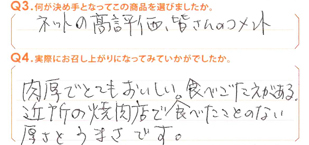 Q3.何が決め手となってこの商品を選びましたか。
ネットの高評価、皆さんのコメント
Q4.実際にお召し上がりになってみていかがでしたか。
肉厚でとてもおいしい。食べごたえがある。
近所の焼肉店で食べたことのない
厚さとうまさです。